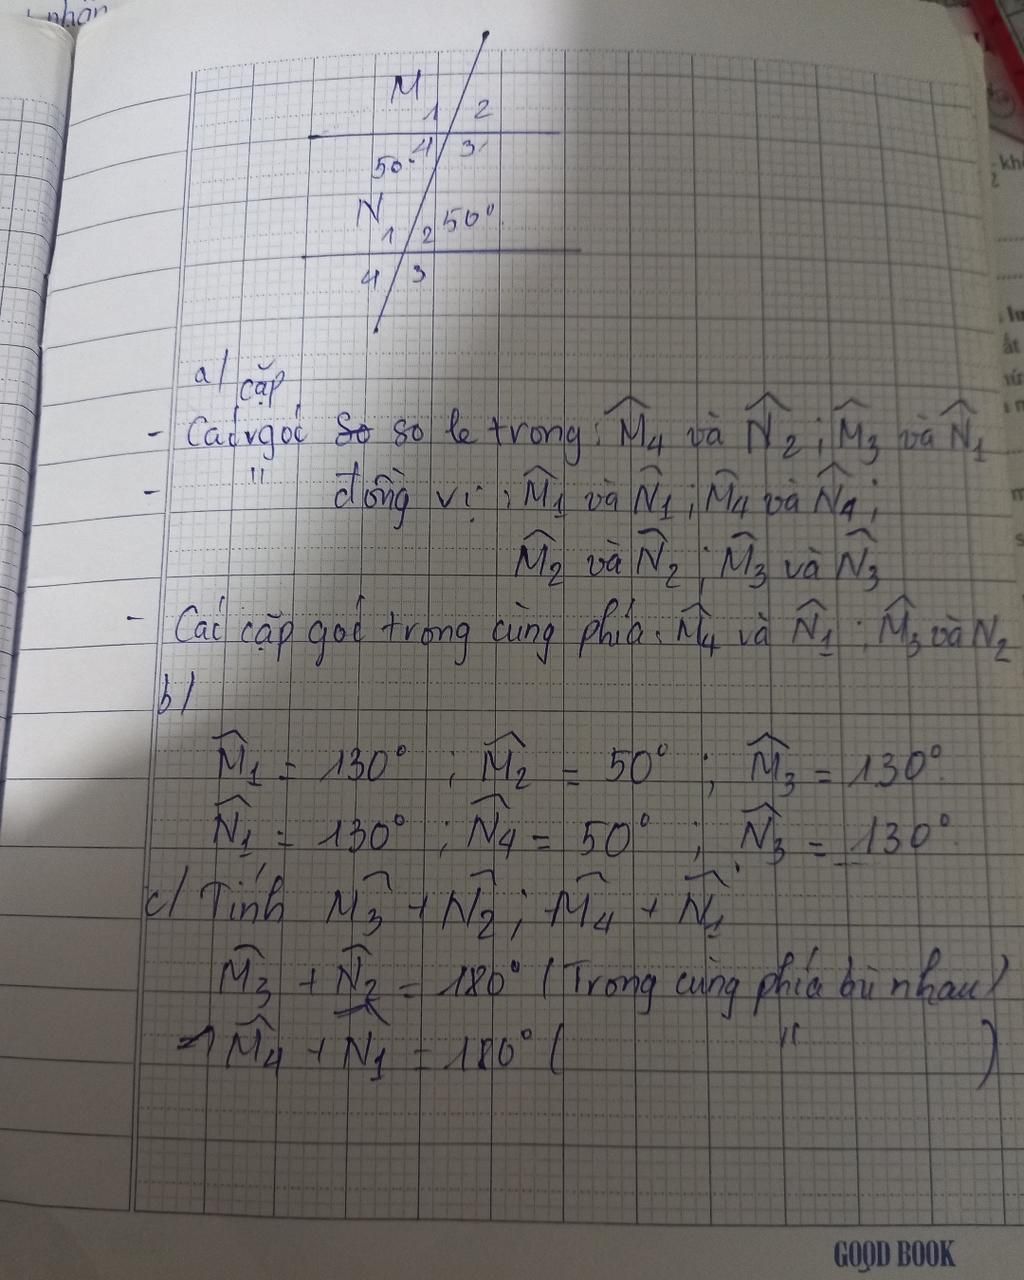 nhân
M
1 2
4 3
50°
N
1 2 50°
4 3
a/
cặp
- Các góc so le trong: M̂4 và N̂2 ; M̂3 và N̂1
- " đồng vị: M̂1 và N̂1 ; M̂4 và N̂4 ;
M̂2 và N̂2 ; M̂3 và N̂3
- Các cặp góc trong cùng phía: M̂4 và N̂1 ; M̂3 và N2
b/
M̂1 = 130° ; M̂2 = 50° ; M̂3 = 130°.
N̂1 = 130° ; N̂4 = 50° ; N̂3 = 130°.
c/ Tính M̂3 + N̂2 ; M̂4 + N̂1
M̂3 + N̂2 = 180° (Trong cùng phía bù nhau)
M̂4 + N̂1 = 180° ( " )
GOOD BOOK